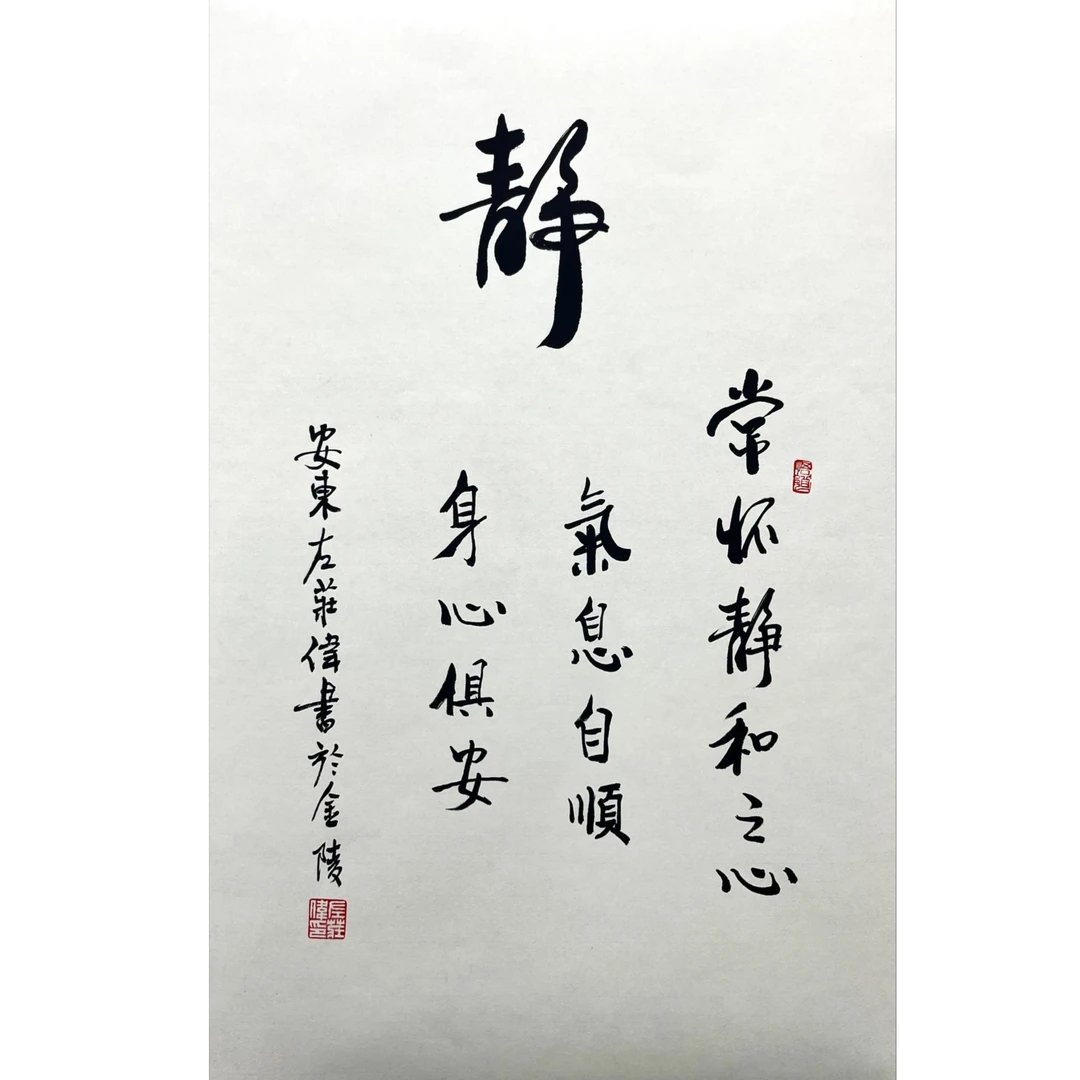 静
常怀静和之心
氣息自順
身心俱安
安東左莊偉書於金陵
左莊偉印